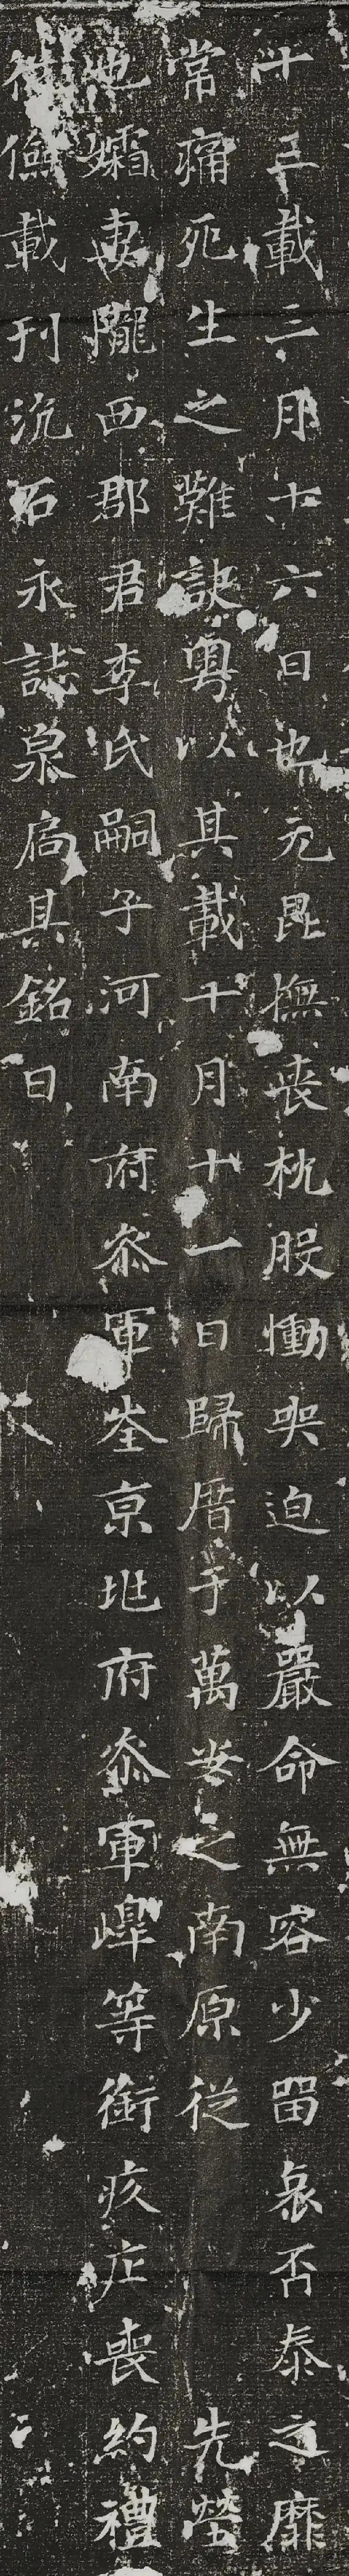 十三載三月十六日也元昆撫喪枕股慟哭迫以嚴命無容少留哀否泰之靡
常痛死生之難訣粤以其載十月十一日歸厝于萬安之南原從先塋
也孀妻隴西郡君李氏嗣子河南府叅軍峑京地府叅軍嶧等銜疚庀喪約禮
儉載刊沉石永誌泉扃其銘曰